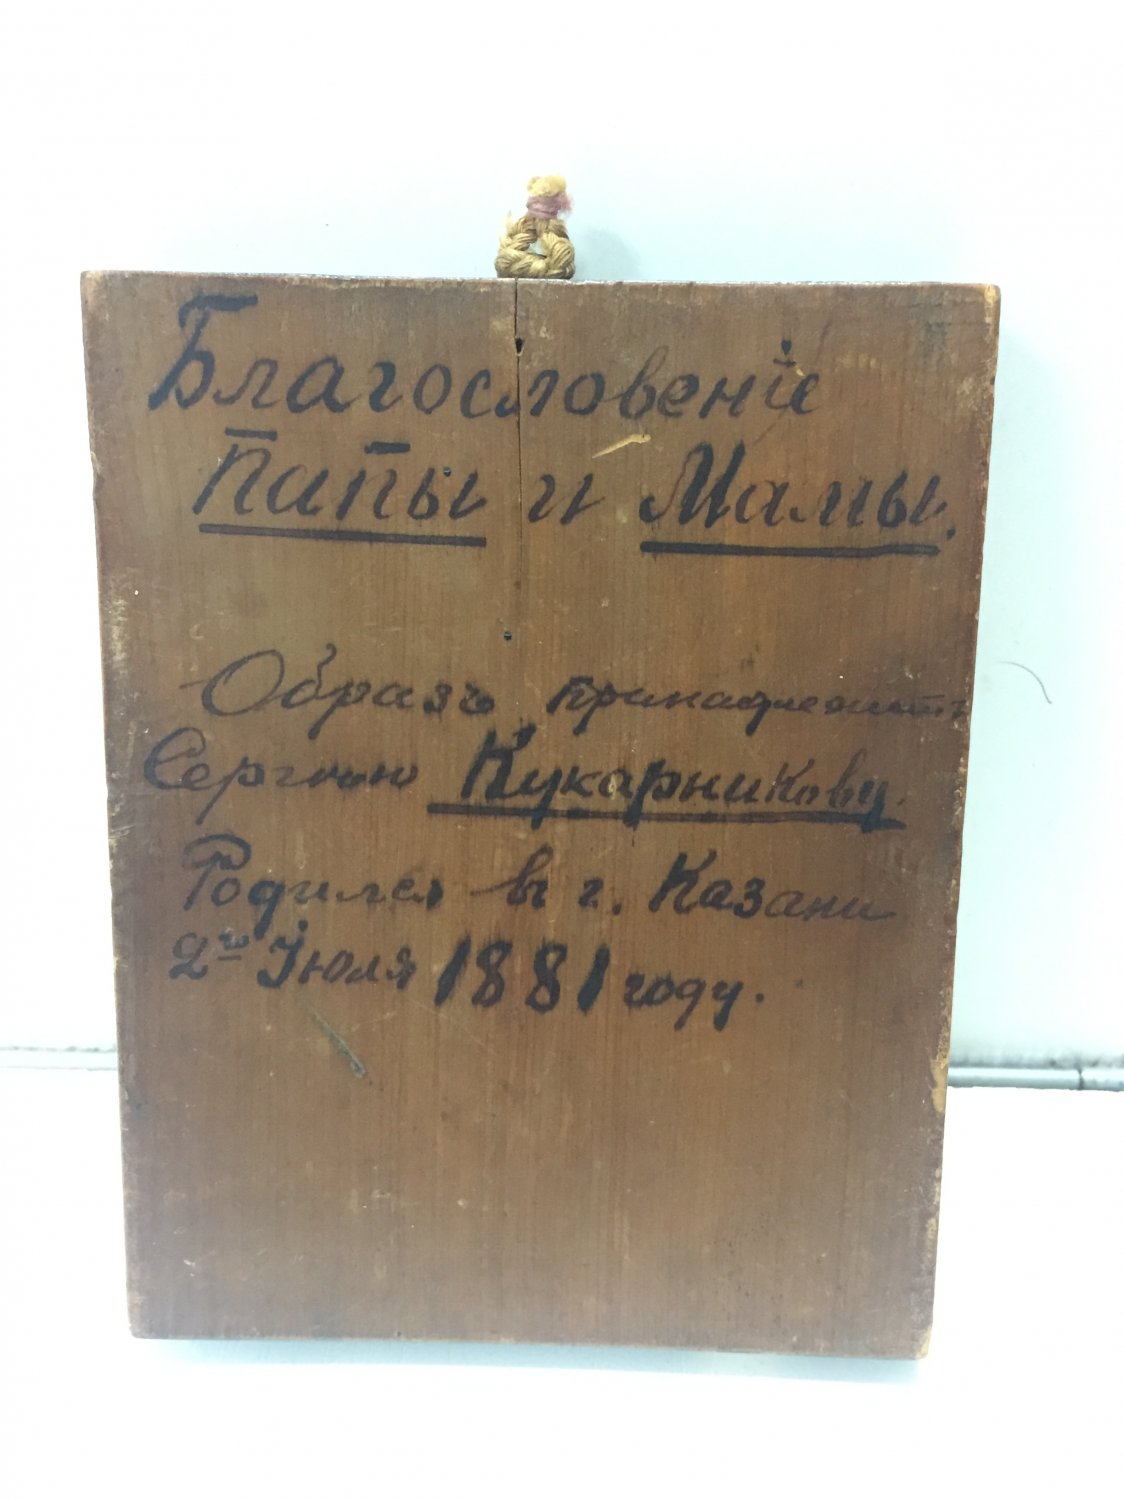 Благословенiе
Папы и Мамы.
Образъ принадлежитъ
Сергѣю Кукарникову.
Родился въ г. Казани
2го Iюля 1881 году.